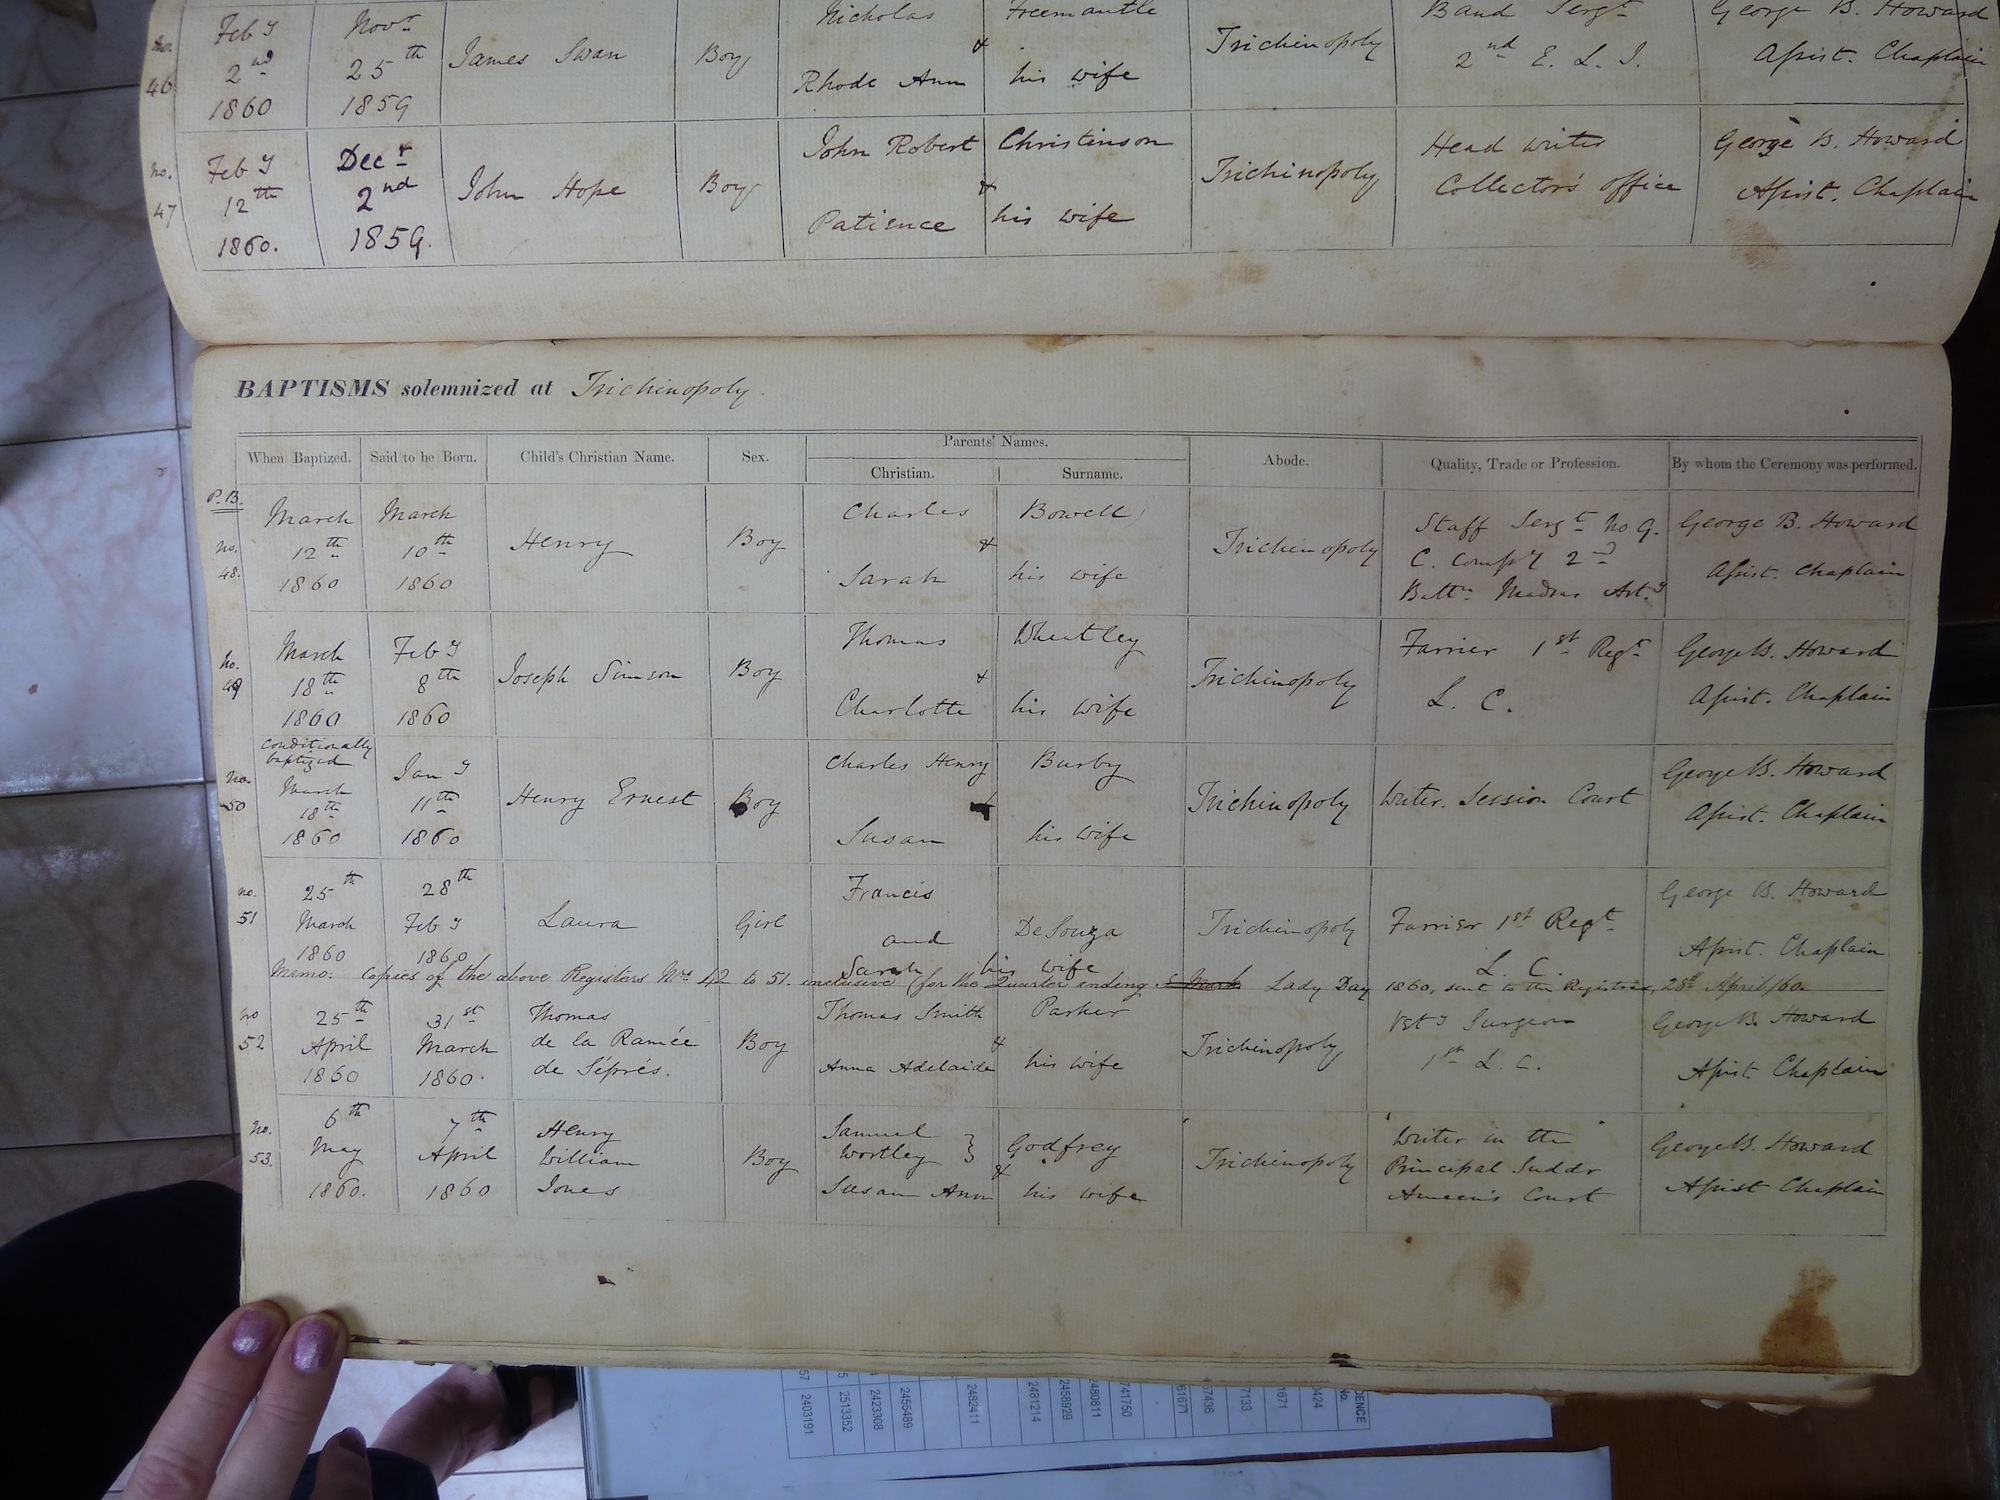 no. 46 Feby 2nd 1860 Novr 25th 1859 James Swan Boy Nicholas & Rhode Ann Freemantle his wife Trichinopoly Band Sergt 2nd E. L. I. George B. Howard Assist. Chaplain
no. 47 Feby 12th 1860. Decr 2nd 1859. John Hope Boy John Robert & Patience Christinson his wife Trichinopoly Head writer Collector's office George B. Howard Assist. Chaplain
BAPTISMS solemnized at Trichinopoly.
Parents' Names.
When Baptized. Said to be Born. Child's Christian Name. Sex. Christian. Surname. Abode. Quality, Trade or Profession. By whom the Ceremony was performed.
P.B.
no. 48. March 12th 1860 March 10th 1860 Henry Boy Charles & Sarah Bowell his wife Trichinopoly Staff Sergt No 9. C. Compy 2nd Battn Madras Arty George B. Howard Assist. Chaplain
no. 49 March 18th 1860 Feby 8th 1860 Joseph Simson Boy Thomas & Charlotte Wheatley his wife Trichinopoly Farrier 1st Regt L. C. George B. Howard Assist. Chaplain
no. 50 conditionally baptized March 18th 1860 Jany 11th 1860 Henry Ernest Boy Charles Henry & Susan Burby his wife Trichinopoly Writer. Session Court George B. Howard Assist. Chaplain
no. 51 25th March 1860 28th Feby 1860 Laura Girl Francis and Sarah DeSouza his wife Trichinopoly Farrier 1st Regt L. C. George B. Howard Assist. Chaplain
Memo. Copies of the above Registers Nos 42 to 51. inclusive (for the Quarter ending Lady Day 1860, sent to the Registrar, 28th April/60
no 52 25th April 1860 31st March 1860. Thomas de la Ramée de Séprés. Boy Thomas Smith & Anna Adelaide Parker his wife Trichinopoly Vety Surgeon 1st L. C. George B. Howard Assist. Chaplain
no. 53. 6th May 1860. 7th April 1860 Henry William Jones Boy Samuel Wortley } & Susan Ann Godfrey his wife Trichinopoly Writer in the Principal Suddr Ameen's Court George B. Howard Assist Chaplain
57 2403191
5 2513352
2423308
2455489
2482411
2481214
2458929
2480811
741750
61671
57436
7133
1671
0424
DENCE No.